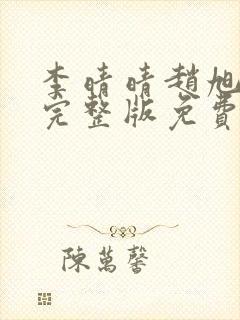 李晴晴趙旭
完整版免費
陳萬馨